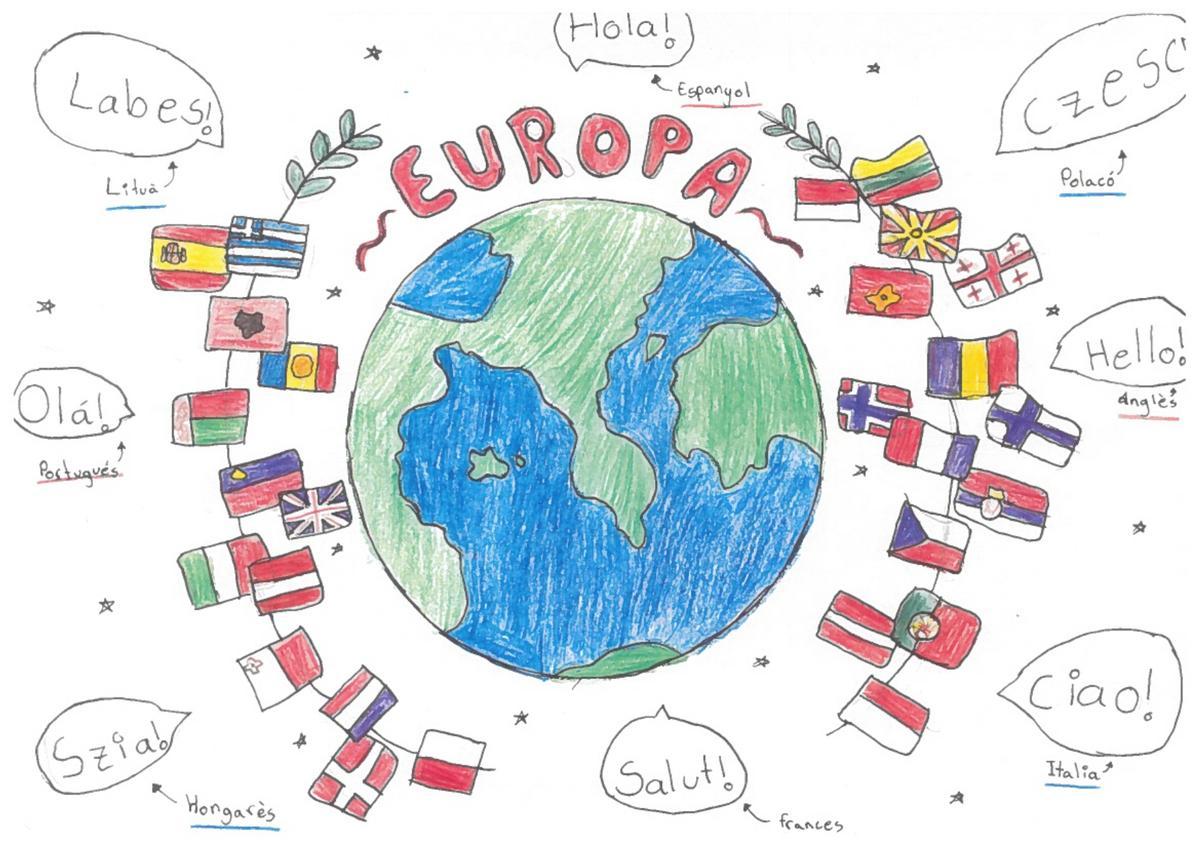 Hola!
Espanyol
Labes!
Lituà
CZESC
Polacó
EUROPA
Hello!
Anglès
Olá!
Portugués
Ciao!
Italia
Szia!
Hongarès
Salut!
frances